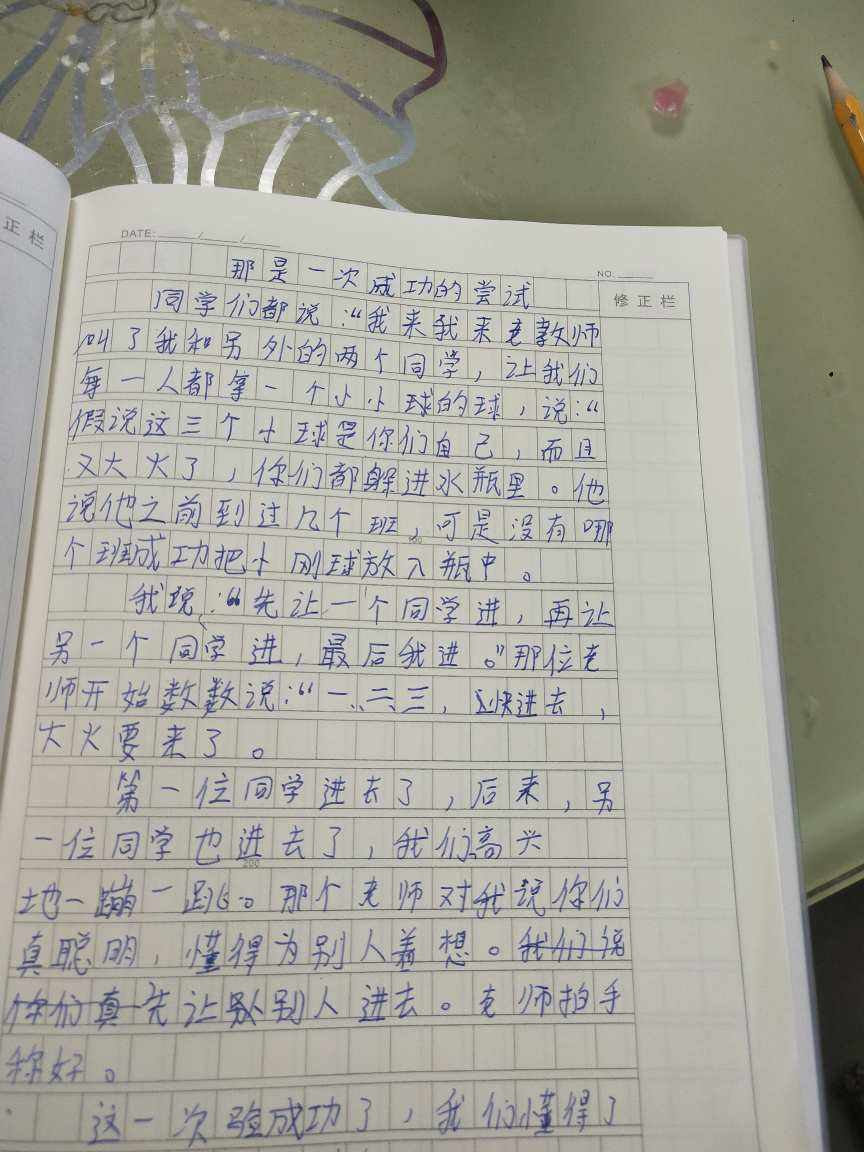 正栏
DATE: / /
NO.
修正栏
那是一次成功的尝试
同学们都说:“我来我来老教师
叫了我和另外的两个同学，让我们
每一人都拿一个小小球的球，说:“
假说这三个小球是你们自己，而且
又大火了，你们都躲进水瓶里。他
说他之前到过几个班，可是没有哪
100
个班成功把小刚球放入瓶中。
我说:“先让一个同学进，再让
另一个同学进，最后我进。”那位老
师开始数数说:“一、二、三，快进去，
大火要来了。
第一位同学进去了，后来，另
一位同学也进去了，我们高兴
200
地一蹦一跳。那个老师对我说你们
真聪明，懂得为别人着想。我们说
你们真先让别人进去。老师拍手
称好。
这一次验成功了，我们懂得了